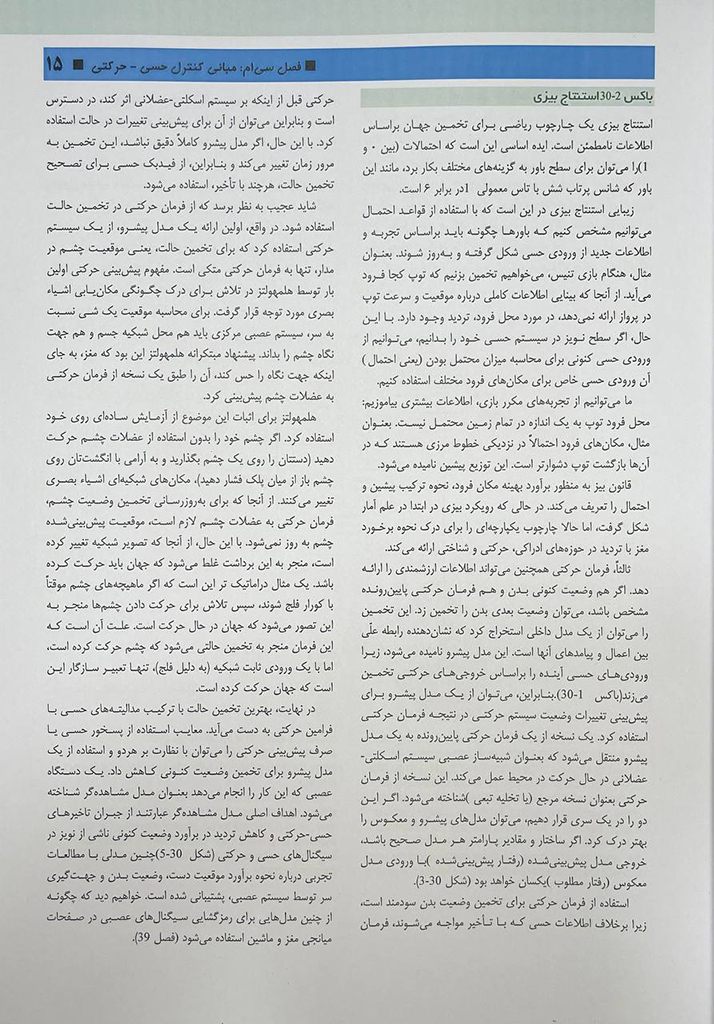 ■ فصل سی‌ام: مبانی کنترل حسی - حرکتی ■ ۱۵
باکس 2-30استنتاج بیزی
استنتاج بیزی یک چارچوب ریاضی برای تخمین جهان براساس
اطلاعات نامطمئن است. ایده اساسی این است که احتمالات (بین ۰ و
1)را می‌توان برای سطح باور به گزینه‌های مختلف بکار برد، مانند این
باور که شانس پرتاب شش با تاس معمولی 1در برابر ۶ است.
زیبایی استنتاج بیزی در این است که با استفاده از قواعد احتمال
می‌توانیم مشخص کنیم که باورها چگونه باید براساس تجربه و
اطلاعات جدید از ورودی حسی شکل گرفته و به‌روز شوند. بعنوان
مثال، هنگام بازی تنیس، می‌خواهیم تخمین بزنیم که توپ کجا فرود
می‌آید. از آنجا که بینایی اطلاعات کاملی درباره موقعیت و سرعت توپ
در پرواز ارائه نمی‌دهد، در مورد محل فرود، تردید وجود دارد. با این
حال، اگر سطح نویز در سیستم حسی خود را بدانیم، می‌توانیم از
ورودی حسی کنونی برای محاسبه میزان محتمل بودن (یعنی احتمال )
آن ورودی حسی خاص برای مکان‌های فرود مختلف استفاده کنیم.
ما می‌توانیم از تجربه‌های مکرر بازی، اطلاعات بیشتری بیاموزیم:
محل فرود توپ به یک اندازه در تمام زمین محتمل نیست. بعنوان
مثال، مکان‌های فرود احتمالاً در نزدیکی خطوط مرزی هستند که در
آن‌ها بازگشت توپ دشوارتر است. این توزیع پیشین نامیده می‌شود.
قانون بیز به منظور برآورد بهینه مکان فرود، نحوه ترکیب پیشین و
احتمال را تعریف می‌کند. در حالی که رویکرد بیزی در ابتدا در علم آمار
شکل گرفت، اما حالا چارچوب یکپارچه‌ای را برای درک نحوه برخورد
مغز با تردید در حوزه‌های ادراکی، حرکتی و شناختی ارائه می‌کند.
ثالثاً، فرمان حرکتی همچنین می‌تواند اطلاعات ارزشمندی را ارائه
دهد. اگر هم وضعیت کنونی بدن و هم فرمان حرکتی پایین‌رونده
مشخص باشد، می‌توان وضعیت بعدی بدن را تخمین زد. این تخمین
را می‌توان از یک مدل داخلی استخراج کرد که نشان‌دهنده رابطه علّی
بین اعمال و پیامدهای آنها است. این مدل پیشرو نامیده می‌شود، زیرا
ورودی‌های حسی آینده را براساس خروجی‌های حرکتی تخمین
می‌زند(باکس 1-30).بنابراین، می‌توان از یک مدل پیشرو برای
پیش‌بینی تغییرات وضعیت سیستم حرکتی در نتیجه فرمان حرکتی
استفاده کرد. یک نسخه از یک فرمان حرکتی پایین‌رونده به یک مدل
پیشرو منتقل می‌شود که بعنوان شبیه‌ساز عصبی سیستم اسکلتی-
عضلانی در حال حرکت در محیط عمل می‌کند. این نسخه از فرمان
حرکتی بعنوان نسخه مرجع (یا تخلیه تبعی )شناخته می‌شود. اگر این
دو را در یک سری قرار دهیم، می‌توان مدل‌های پیشرو و معکوس را
بهتر درک کرد. اگر ساختار و مقادیر پارامتر هر مدل صحیح باشد،
خروجی مدل پیش‌بینی‌شده (رفتار پیش‌بینی‌شده )با ورودی مدل
معکوس (رفتار مطلوب )یکسان خواهد بود (شکل 3-30).
استفاده از فرمان حرکتی برای تخمین وضعیت بدن سودمند است،
زیرا برخلاف اطلاعات حسی که با تأخیر مواجه می‌شوند، فرمان
حرکتی قبل از اینکه بر سیستم اسکلتی-عضلانی اثر کند، در دسترس
است و بنابراین می‌توان از آن برای پیش‌بینی تغییرات در حالت استفاده
کرد. با این حال، اگر مدل پیشرو کاملاً دقیق نباشد، این تخمین به
مرور زمان تغییر می‌کند و بنابراین، از فیدبک حسی برای تصحیح
تخمین حالت، هرچند با تأخیر، استفاده می‌شود.
شاید عجیب به نظر برسد که از فرمان حرکتی در تخمین حالت
استفاده شود. در واقع، اولین ارائه یک مدل پیشرو، از یک سیستم
حرکتی استفاده کرد که برای تخمین حالت، یعنی موقعیت چشم در
مدار، تنها به فرمان حرکتی متکی است. مفهوم پیش‌بینی حرکتی اولین
بار توسط هلمهولتز در تلاش برای درک چگونگی مکان‌یابی اشیاء
بصری مورد توجه قرار گرفت. برای محاسبه موقعیت یک شی نسبت
به سر، سیستم عصبی مرکزی باید هم محل شبکیه جسم و هم جهت
نگاه چشم را بداند. پیشنهاد مبتکرانه هلمهولتز این بود که مغز، به جای
اینکه جهت نگاه را حس کند، آن را طبق یک نسخه از فرمان حرکتی
به عضلات چشم پیش‌بینی کرد.
هلمهولتز برای اثبات این موضوع از آزمایش ساده‌ای روی خود
استفاده کرد. اگر چشم خود را بدون استفاده از عضلات چشم حرکت
دهید (دستتان را روی یک چشم بگذارید و به آرامی با انگشت‌تان روی
چشم باز از میان پلک فشار دهید)، مکان‌های شبکیه‌ای اشیاء بصری
تغییر می‌کنند. از آنجا که برای به‌روزرسانی تخمین وضعیت چشم،
فرمان حرکتی به عضلات چشم لازم است، موقعیت پیش‌بینی‌شده
چشم به روز نمی‌شود. با این حال، از آنجا که تصویر شبکیه تغییر کرده
است، منجر به این برداشت غلط می‌شود که جهان باید حرکت کرده
باشد. یک مثال دراماتیک تر این است که اگر ماهیچه‌های چشم موقتاً
با کورار فلج شوند، سپس تلاش برای حرکت دادن چشم‌ها منجر به
این تصور می‌شود که جهان در حال حرکت است. علت آن است که
این فرمان منجر به تخمین حالتی می‌شود که چشم حرکت کرده است،
اما با یک ورودی ثابت شبکیه (به دلیل فلج)، تنها تعبیر سازگار این
است که جهان حرکت کرده است.
در نهایت، بهترین تخمین حالت با ترکیب مدالیته‌های حسی با
فرامین حرکتی به دست می‌آید. معایب استفاده از پسخور حسی یا
صرف پیش‌بینی حرکتی را می‌توان با نظارت بر هردو و استفاده از یک
مدل پیشرو برای تخمین وضعیت کنونی کاهش داد. یک دستگاه
عصبی که این کار را انجام می‌دهد بعنوان مدل مشاهده‌گر شناخته
می‌شود. اهداف اصلی مدل مشاهده‌گر عبارتند از جبران تاخیرهای
حسی-حرکتی و کاهش تردید در برآورد وضعیت کنونی ناشی از نویز در
سیگنال‌های حسی و حرکتی (شکل 5-30)چنین مدلی با مطالعات
تجربی درباره نحوه برآورد موقعیت دست، وضعیت بدن و جهت‌گیری
سر توسط سیستم عصبی، پشتیبانی شده است. خواهیم دید که چگونه
از چنین مدل‌هایی برای رمزگشایی سیگنال‌های عصبی در صفحات
میانجی مغز و ماشین استفاده می‌شود (فصل 39).